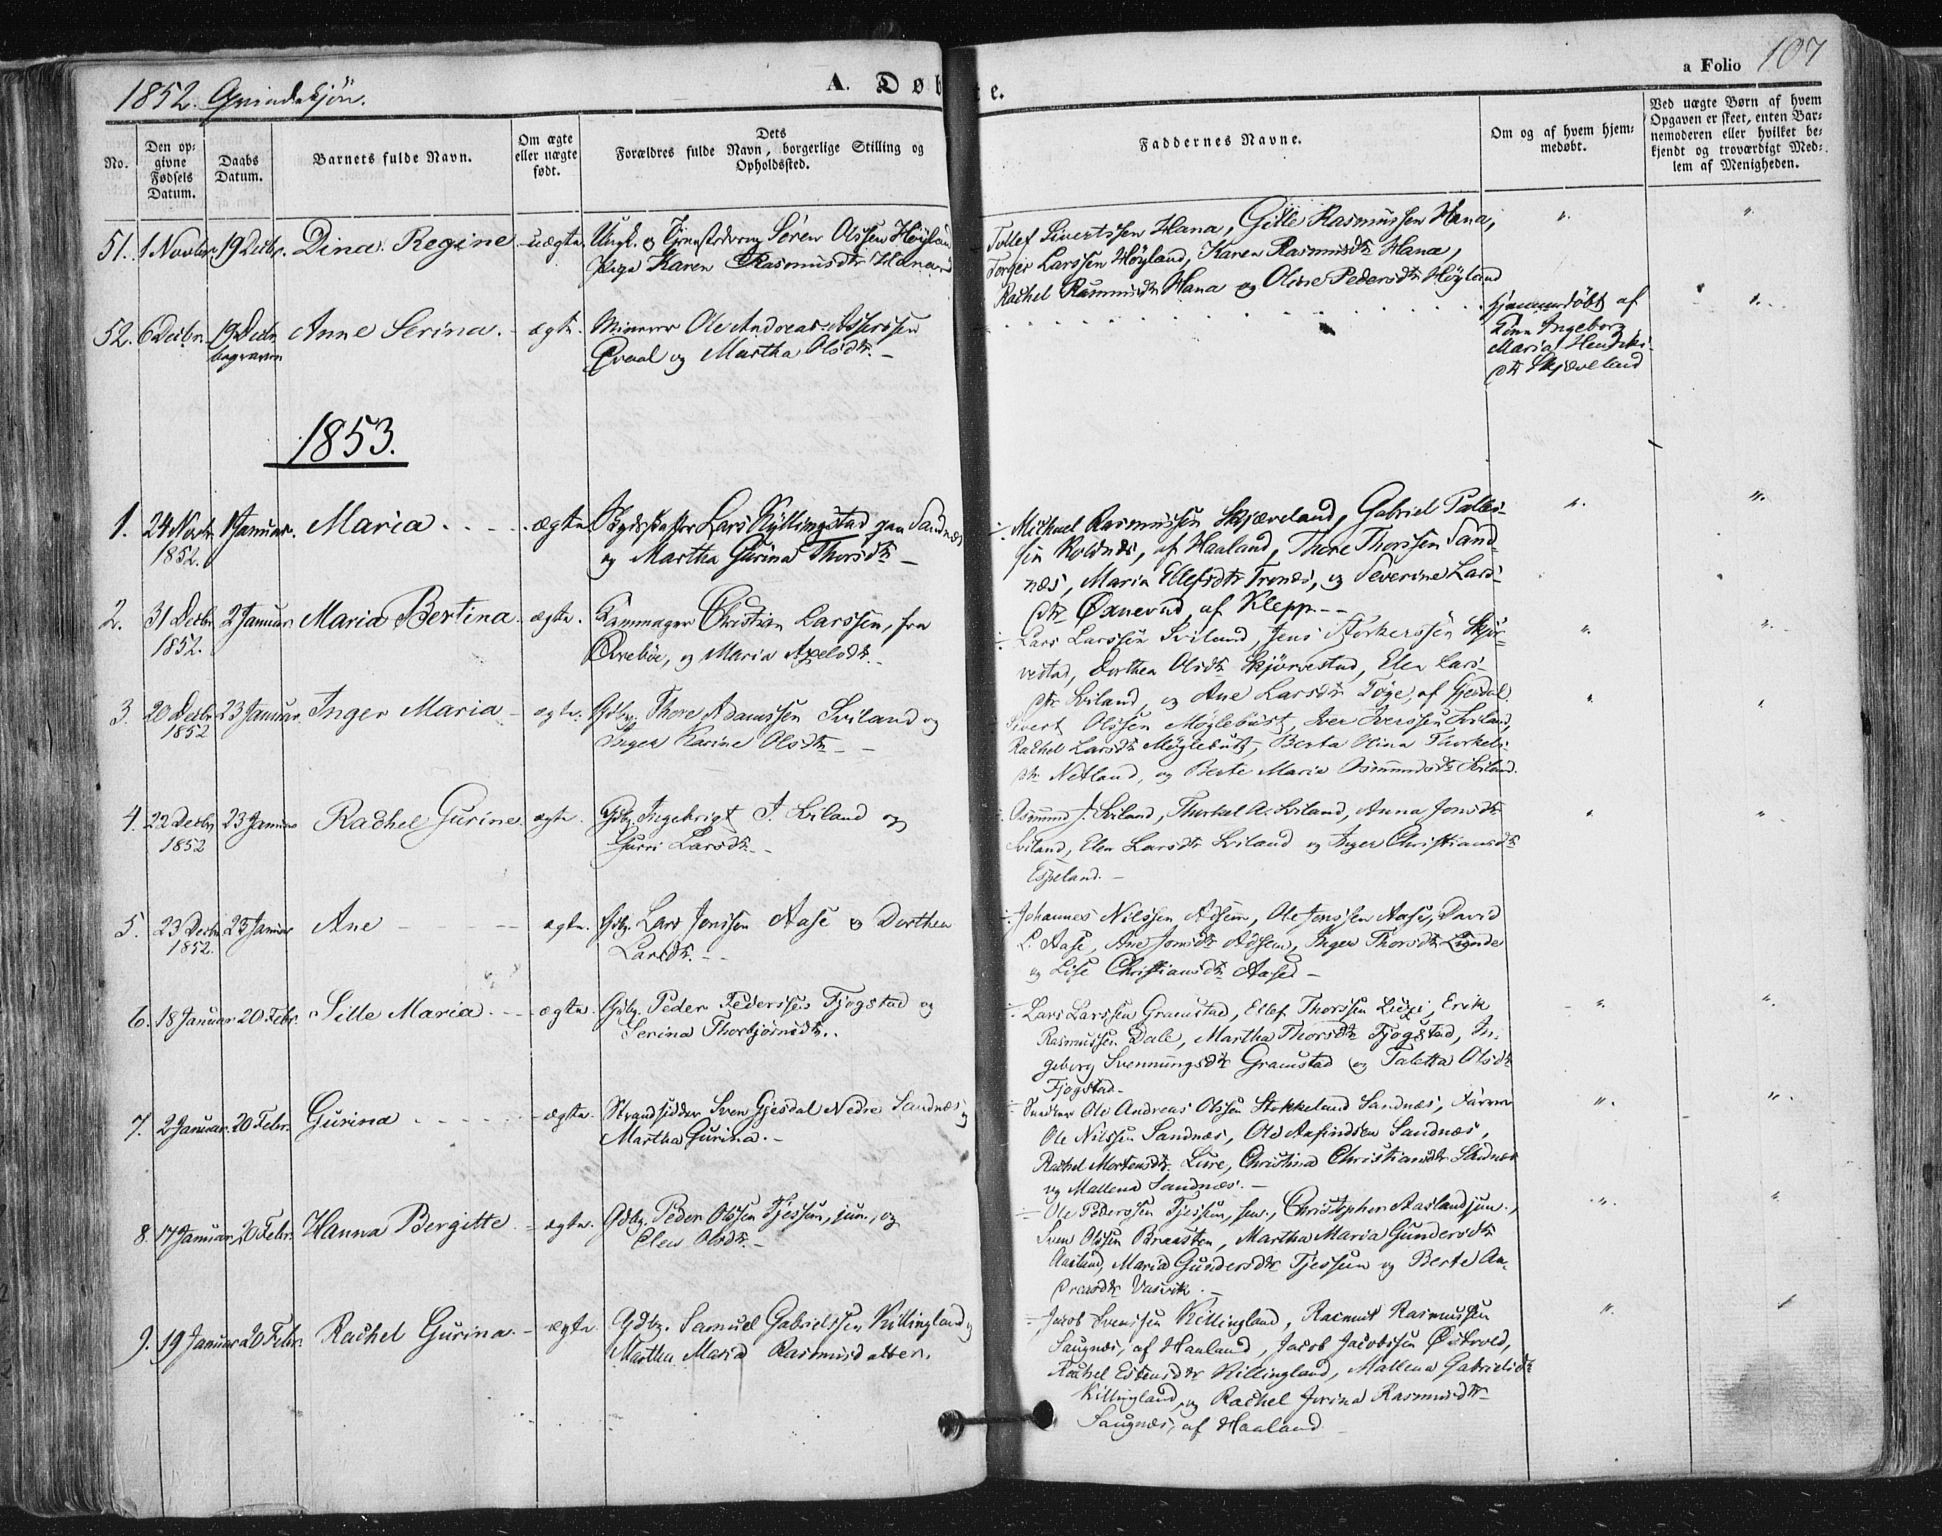 1852. Qvindekjön.
A. Døbte.
a Folio 107
No.
Den op-
givne
Fødsels
Datum.
Daabs
Datum.
Barnets fulde Navn.
Om ægte
eller uægte
født.
Dets
Forældres fulde Navn, borgerlige Stilling og
Opholdssted.
Faddernes Navne.
Om og af hvem hjem-
medøbt.
Ved uægte Børn af hvem
Opgaven er skeet, enten Bar-
nemoderen eller hvilket be-
kjendt og troværdigt Med-
lem af Menigheden.
51. 1 Novbr. 19 Decbr. Dina Regine uægte Ungk. og Sören Olssen Höyland
Pige Karen Rasmusdtr Hana
Tollef Sivertssen Hana, Gitle Rasmussen Hana,
Torger Larssen Höyland, Karen Rasmusdtr Hana,
Rachel Rasmusdtr Hana og Olene Pedersdtr Höyland
52. 6 Decbr. 19 Decbr. Anne Serina. ægte. Ole Andreas Assersen
begraven
Qvaal og Martha Olsdtr.
Hjemmedöbt af
Ingeborg
Maria Henriks-
dtr Skjæveland
1853.
1. 24 Novbr. 1 Januar. Maria ægte Lars Kyllingstad paa Sandnæs
1852.
og Martha Gurina Thorsdtr
Michael Rasmussen Skjæveland, Gabriel Palles-
sen af Haaland, Thore Thorssen Sand-
næs, Maria Ellefsdtr Tronæs, og Severine Lars-
dtr Öxnevad, af Klepp.
2. 31 Decbr 2 Januar Maria Bertina ægte. Christian Larssen, fra
1852.
Övreböe, og Maria Axelsdtr.
Lars Larssen Sviland, Jens Skjör-
vestad, Dorthea Olsdtr Skjörvestad, Elen Lars-
dtr Sviland, og Ane Larsdtr af Gjesdal.
3. 20 Decbr 23 Januar Inger Maria ægte. Gdbr. Thore Adamssen Sviland og
1852
Inger Karine Olsdtr
Sivert Olssen Möglebust, Iver Iverssen Sviland,
Rachel Larsdtr Möglebust, Berta Olina Thorkels-
dtr Netland, og Berte Maria Osmundsdtr Sviland.
4. 22 Decbr 23 Januar Rachel Gurine ægte. Gdbr. Ingebrigt J. Sviland og
1852
Gurri Larsdtr.
Osmund J. Sviland, Thorkel A. Sviland, Anna Jonsdtr
Sviland, Elen Larsdtr Sviland og Inger Christiansdtr
Espeland.
5. 23 Decbr 25 Januar Ane ægte. Gdbr. Lars Jonssen Aase og Dorthea
1852.
Larsdtr.
Johannes Nilssen Adsem, Ole Jonssen Aase, David
L. Aase, Ane Jonsdtr Adsem, Inger Thorsdtr Lunde
og Lise Christiansdtr Aase.
6. 18 Januar 20 Febr. Sille Maria. ægte. Gdbr. Peder Pederssen Fjogstad og
Serina Thorbjörnsdtr.
Lars Larssen Gramstad, Ellef Thorssen Erik
Rasmussen Dale, Martha Thorsdtr Fjogstad, In-
geborg Svenningsdtr Gramstad og Taletta Olsdtr
Fjogstad.
7. 2 Januar. 20 Febr. Gurina ægte. Strandsidder Sven Gjesdal Nedre Sandnæs og
Martha Gurina.
Ole Andreas Olssen Stokkeland Sandnæs,
Ole Nilssen Sandnæs, Ole Aasindsen Sandnæs,
Rachel Mortensdtr Lure, Christina Christiansdtr Sandnæs
og Mallena Sandnæs.
8. 17 Januar 20 Febr. Hanna Bergitte ægte. Gdbr. Peder Olssen Tjessem, jun., og
Elen Olsdtr.
Ole Pederssen Tjessem, sen., Christopher Aasland jun.,
Sven Olssen Braasten, Martha Maria Gundersdtr
Aasland, Maria Gundersdtr Tjessem og Berte An-
dreasdtr Vasvik.
9. 19 Januar 20 Febr. Rachel Gurina. ægte Gdbr. Samuel Gabrielssen Killingland og
Martha Maria Rasmusdatter.
Jacob Svenssen Killingland, Rasmus Rasmussen
Saugnæs, af Haaland, Jacob Jacobssen Östvold,
Rachel Estensdtr Killingland, Mallena Gabrielsdtr
Killingland, og Rachel Jorina Rasmusdtr
Saugnæs, af Haaland